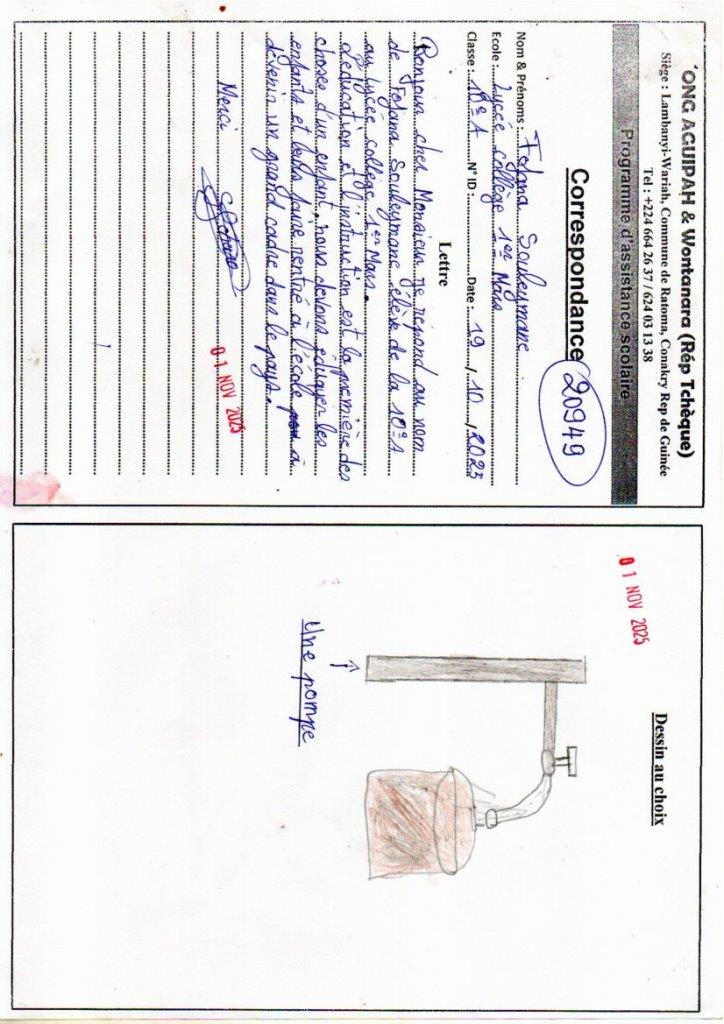 'ONG AGUIPAH & Wontanara (Rép Tchèque)
Siège : Lambanyi-Wariah, Commune de Ratoma, Conakry Rep de Guinée
Tel : +224 664 26 37 / 624 03 13 38
Programme d'assistance scolaire
Correspondance
20949
Nom & Prénoms : Fofana Souleymane
Ecole : Lycée Collège 1er Mars
Classe : 10e A N° ID : Date : 19 / 10 / 2025
Lettre
Bonjour cher Monsieur je répond au nom
de Fofana Souleymane élève de la 10e A
au Lycée collège 1er Mars.
L'éducation et l'instruction est la première des
choses d'un enfant. nous devons éduquer les
enfants et leurs faire rentré à l'école à
dévenir un grand cadre dans le pays.
Merci
01 NOV 2025
Dessin au choix
01 NOV 2025
Une pompe